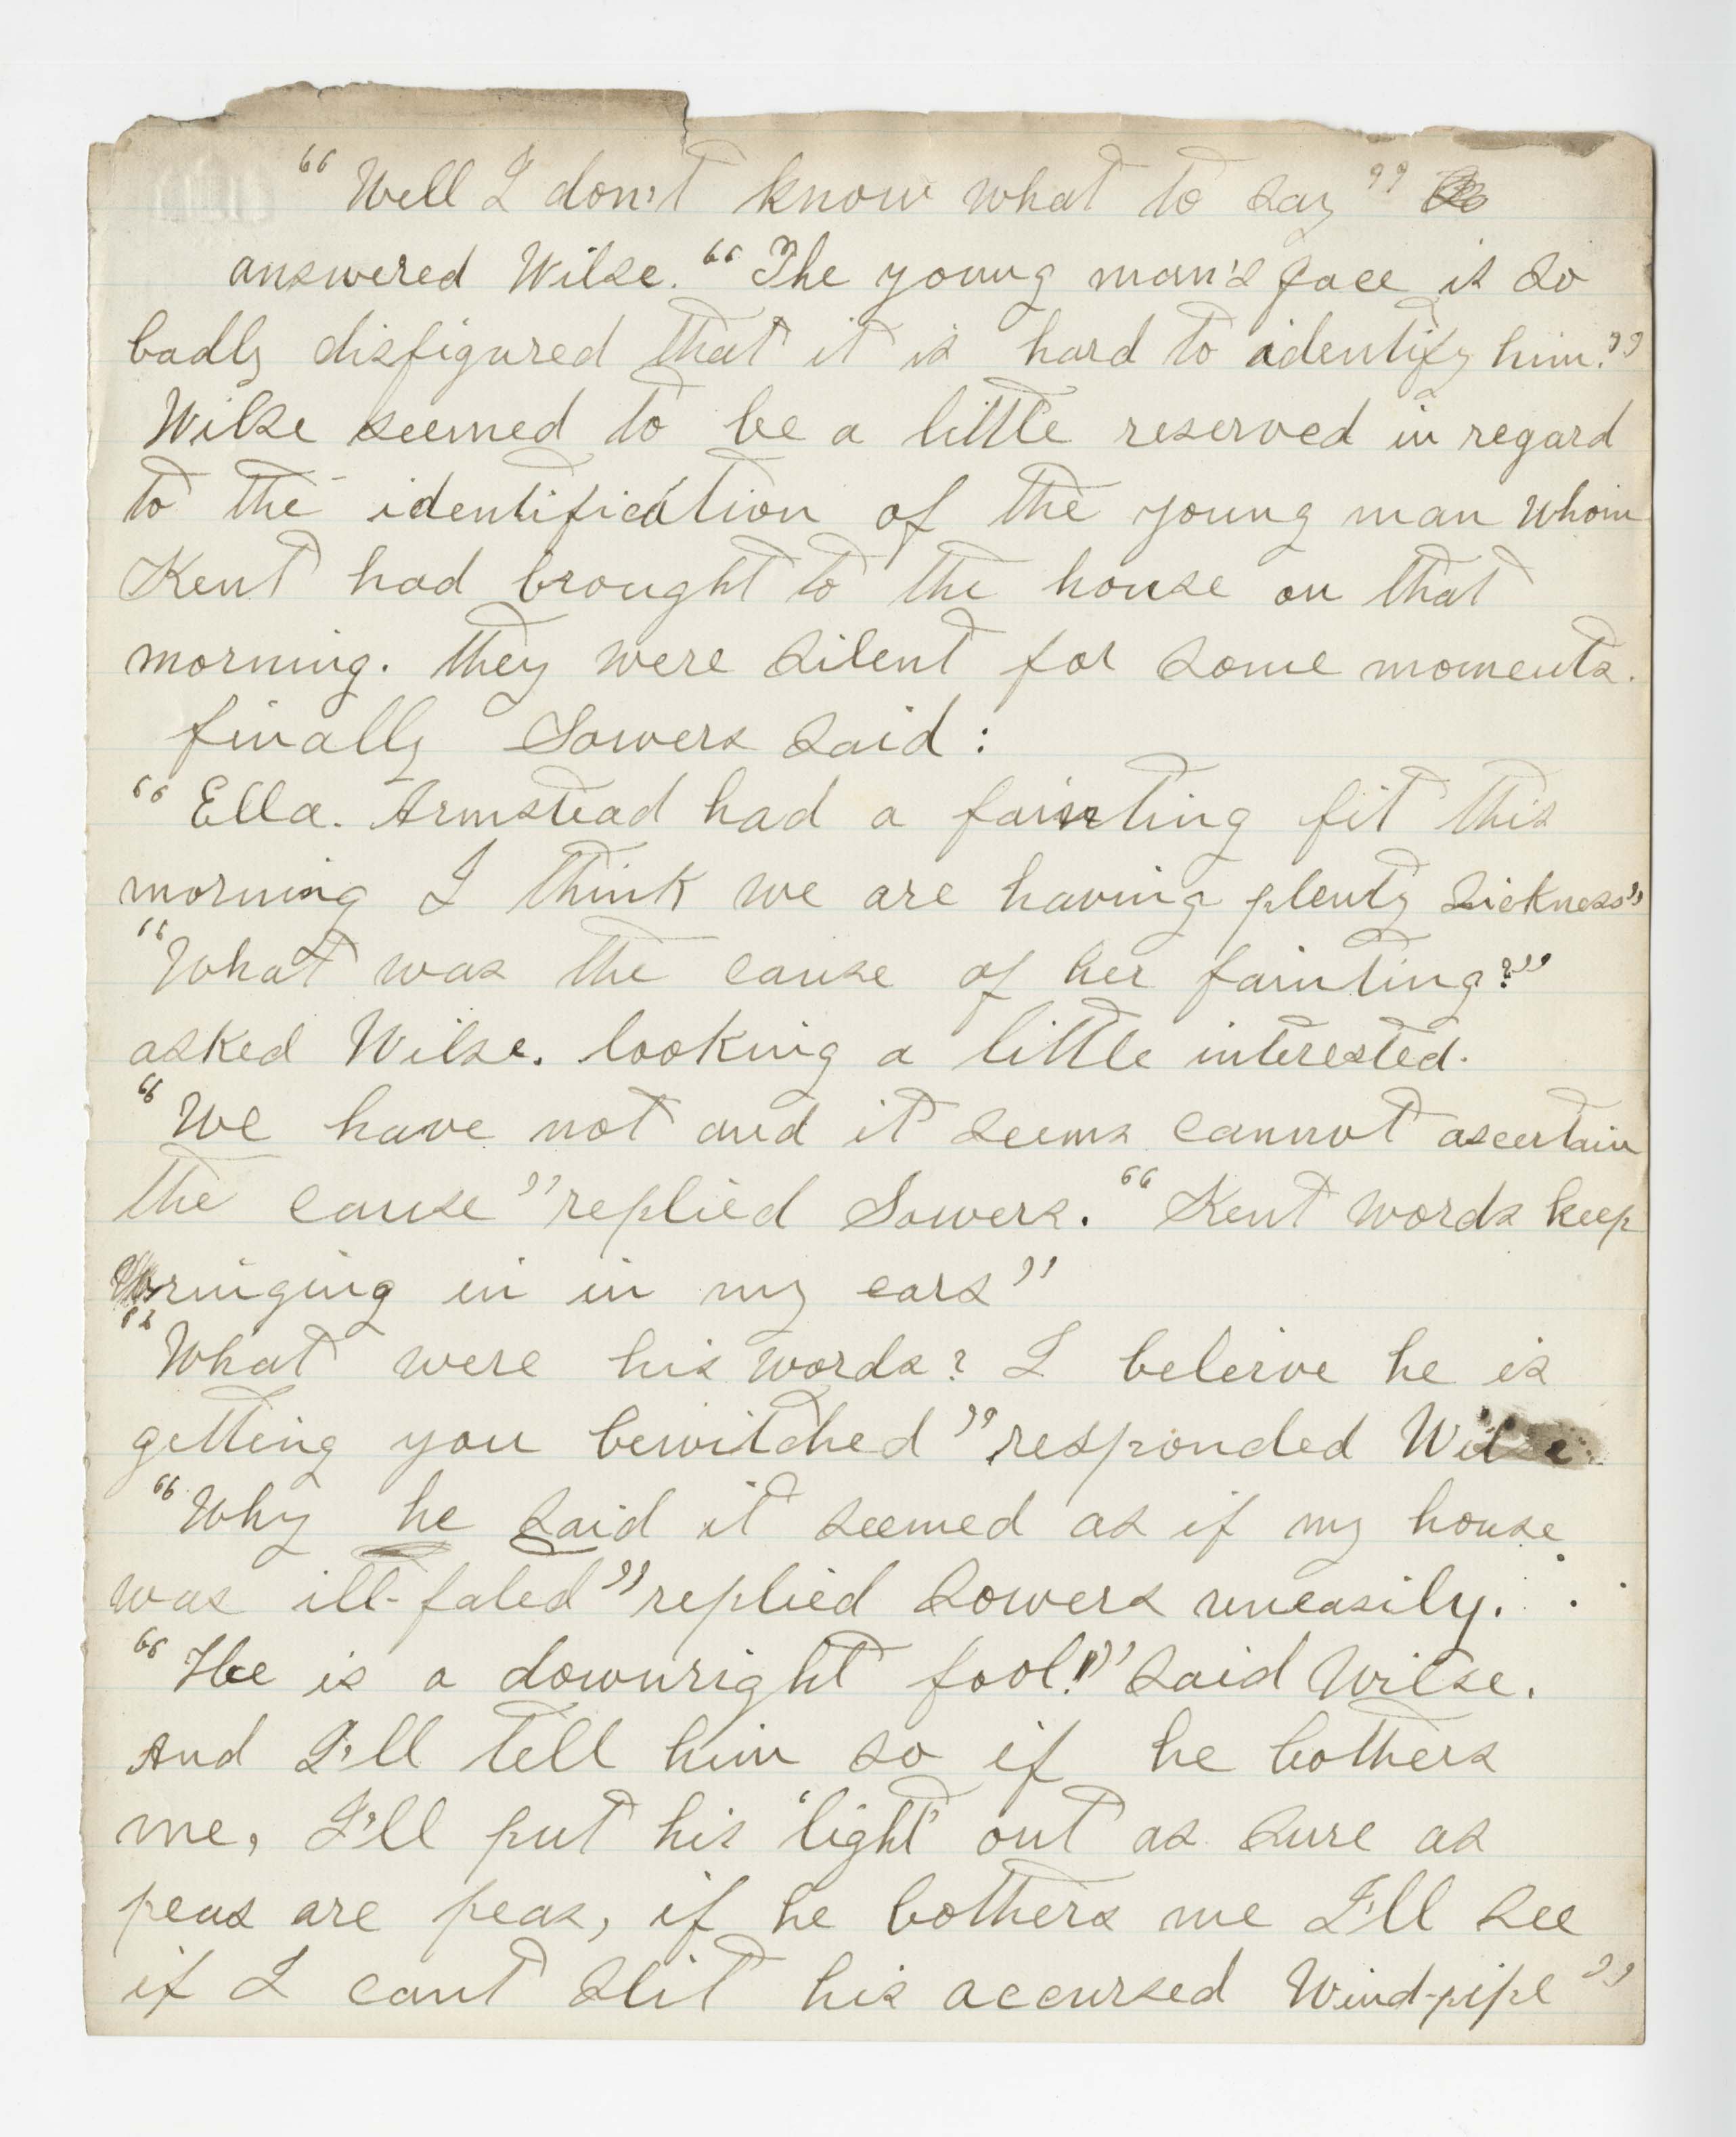 "Well I don't know what to say"
answered Wilse. "The young man's face is so
badly disfigured that it is hard to identify him."
Wilse seemed to be a little reserved in regard
to the identification of the young man whom
Kent had brought to the house on that
morning. they were silent for some moments.
finally Sowers said:
"Ella. Armstead had a fainting fit this
morning I think we are having plenty sickness"
"What was the cause of her fainting?"
asked Wilse. looking a little interested.
"We have not and it seems cannot ascertain
the cause" replied Sowers. "Kent words keep
ringing in in my ears"
"What were his words? I beleive he is
getting you bewitched" responded Wilse
"Why he said it seemed as if my house
was ill-fated" replied Sowers uneasily.
"He is a downright fool!" said Wilse.
And I'll tell him so if he bothers
me, I'll put his 'light' out as sure as
peas are peas, if he bothers me I'll see
if I cant slit his accursed Wind-pipe"